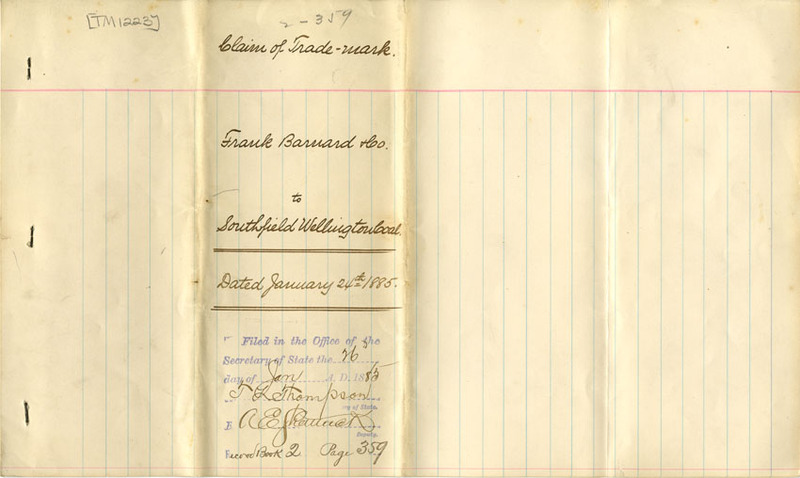 [TM1223]
2-359
Claim of Trade-mark.
Frank Barnard & Co.
to
Southfield Wellington Coal.
Dated January 24th 1885.
Filed in the Office of the
Secretary of State the 26
day of Jan A. D. 1885
T L Thompson
Secretary of State.
Deputy.
Record Book 2 Page 359